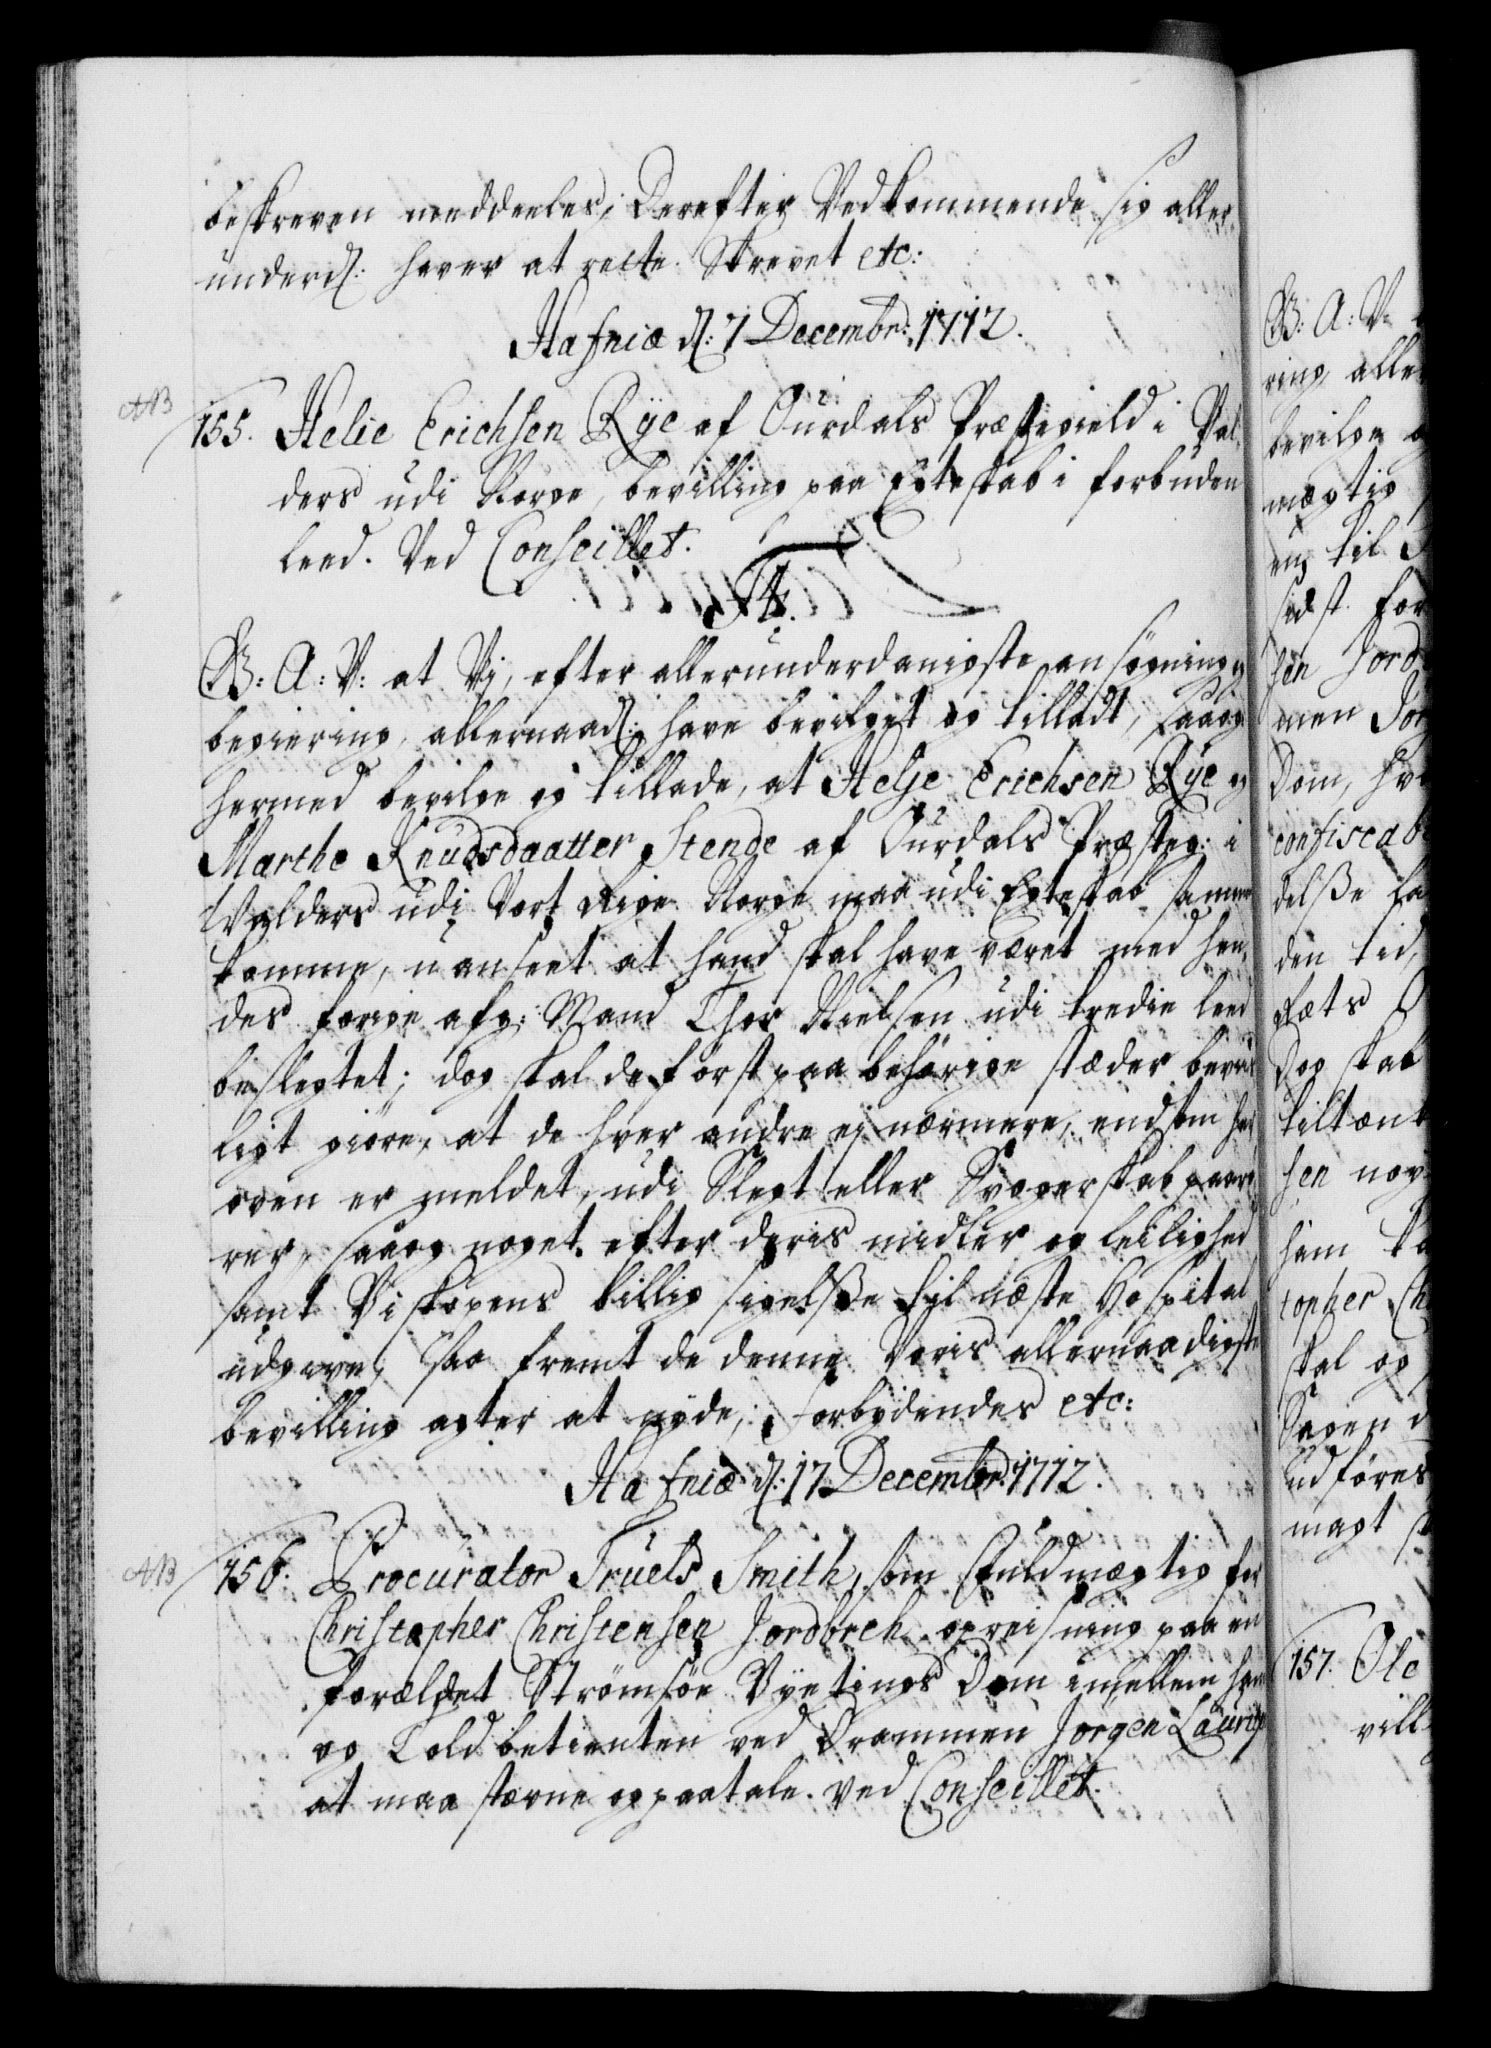 beskreven meddeeles; Derefter Vedkommende sig aller-
underd: haver at rette. Skrevet etc:
Hafniæ d: 7 Decembr: 1712.
NB
155. Helie Erichsen Rÿe af Ourdals Præstegield i Val-
ders udi Norge, bevilling paa Egteskab i forbuden
leed. Ved Conseillet.
F 4.
G: A: V: at Vj, efter allerunderdanigste ansøgning og
begiering, allernaad: have bevilget og tilladt, saa og
hermed bevilge og tillade, at Helje Erichsen Rÿe og
Marthe Knudsdaatter Stende af Ourdals Præsteg: i
Walders udi Vort Rige Norge maa udi Egteskab samme
komme, uanseet at hand skal have været med hen-
des forige afg: Mand Thor Nielsen udi tredie leed
beslegtet; dog skal de først paa behörige stæder bevis-
ligt giöre, at de hver andre ej nærmere, end som her
oven er meldet, udi Slegt eller Svogerskab paarö-
rer, saa og noget efter deris midler og leilighed
samt Biskopens billig sigelsse til næste Hospital
udgive, saa fremt de denne Voris allernaadigste
bevilling agter at nyde, Forbydendes etc:
Hafniæ d: 17 Decembr: 1712.
NB
156. Procurator Truels Smith, som Fuldmægtig for
Christopher Christensen Jordbreh opreisning paa en
forældet Strømsöe Byetings Dom imellem ham
og Toldbetienten ved Drammen Jörgen Lauritz
at maa stævne og paatale. Ved Conseillet.
G: A: V:
ring, alle
bevilge og
mægtig
en til
sidst for
sen Jord
men Jör
Dom, hv
confiscab
delsse ha
den tid,
Rets
Dog skal
tiltænt
sen nog
ham
topher Ch
skal og
Sagen
udføres
magt
157. Ole
vill